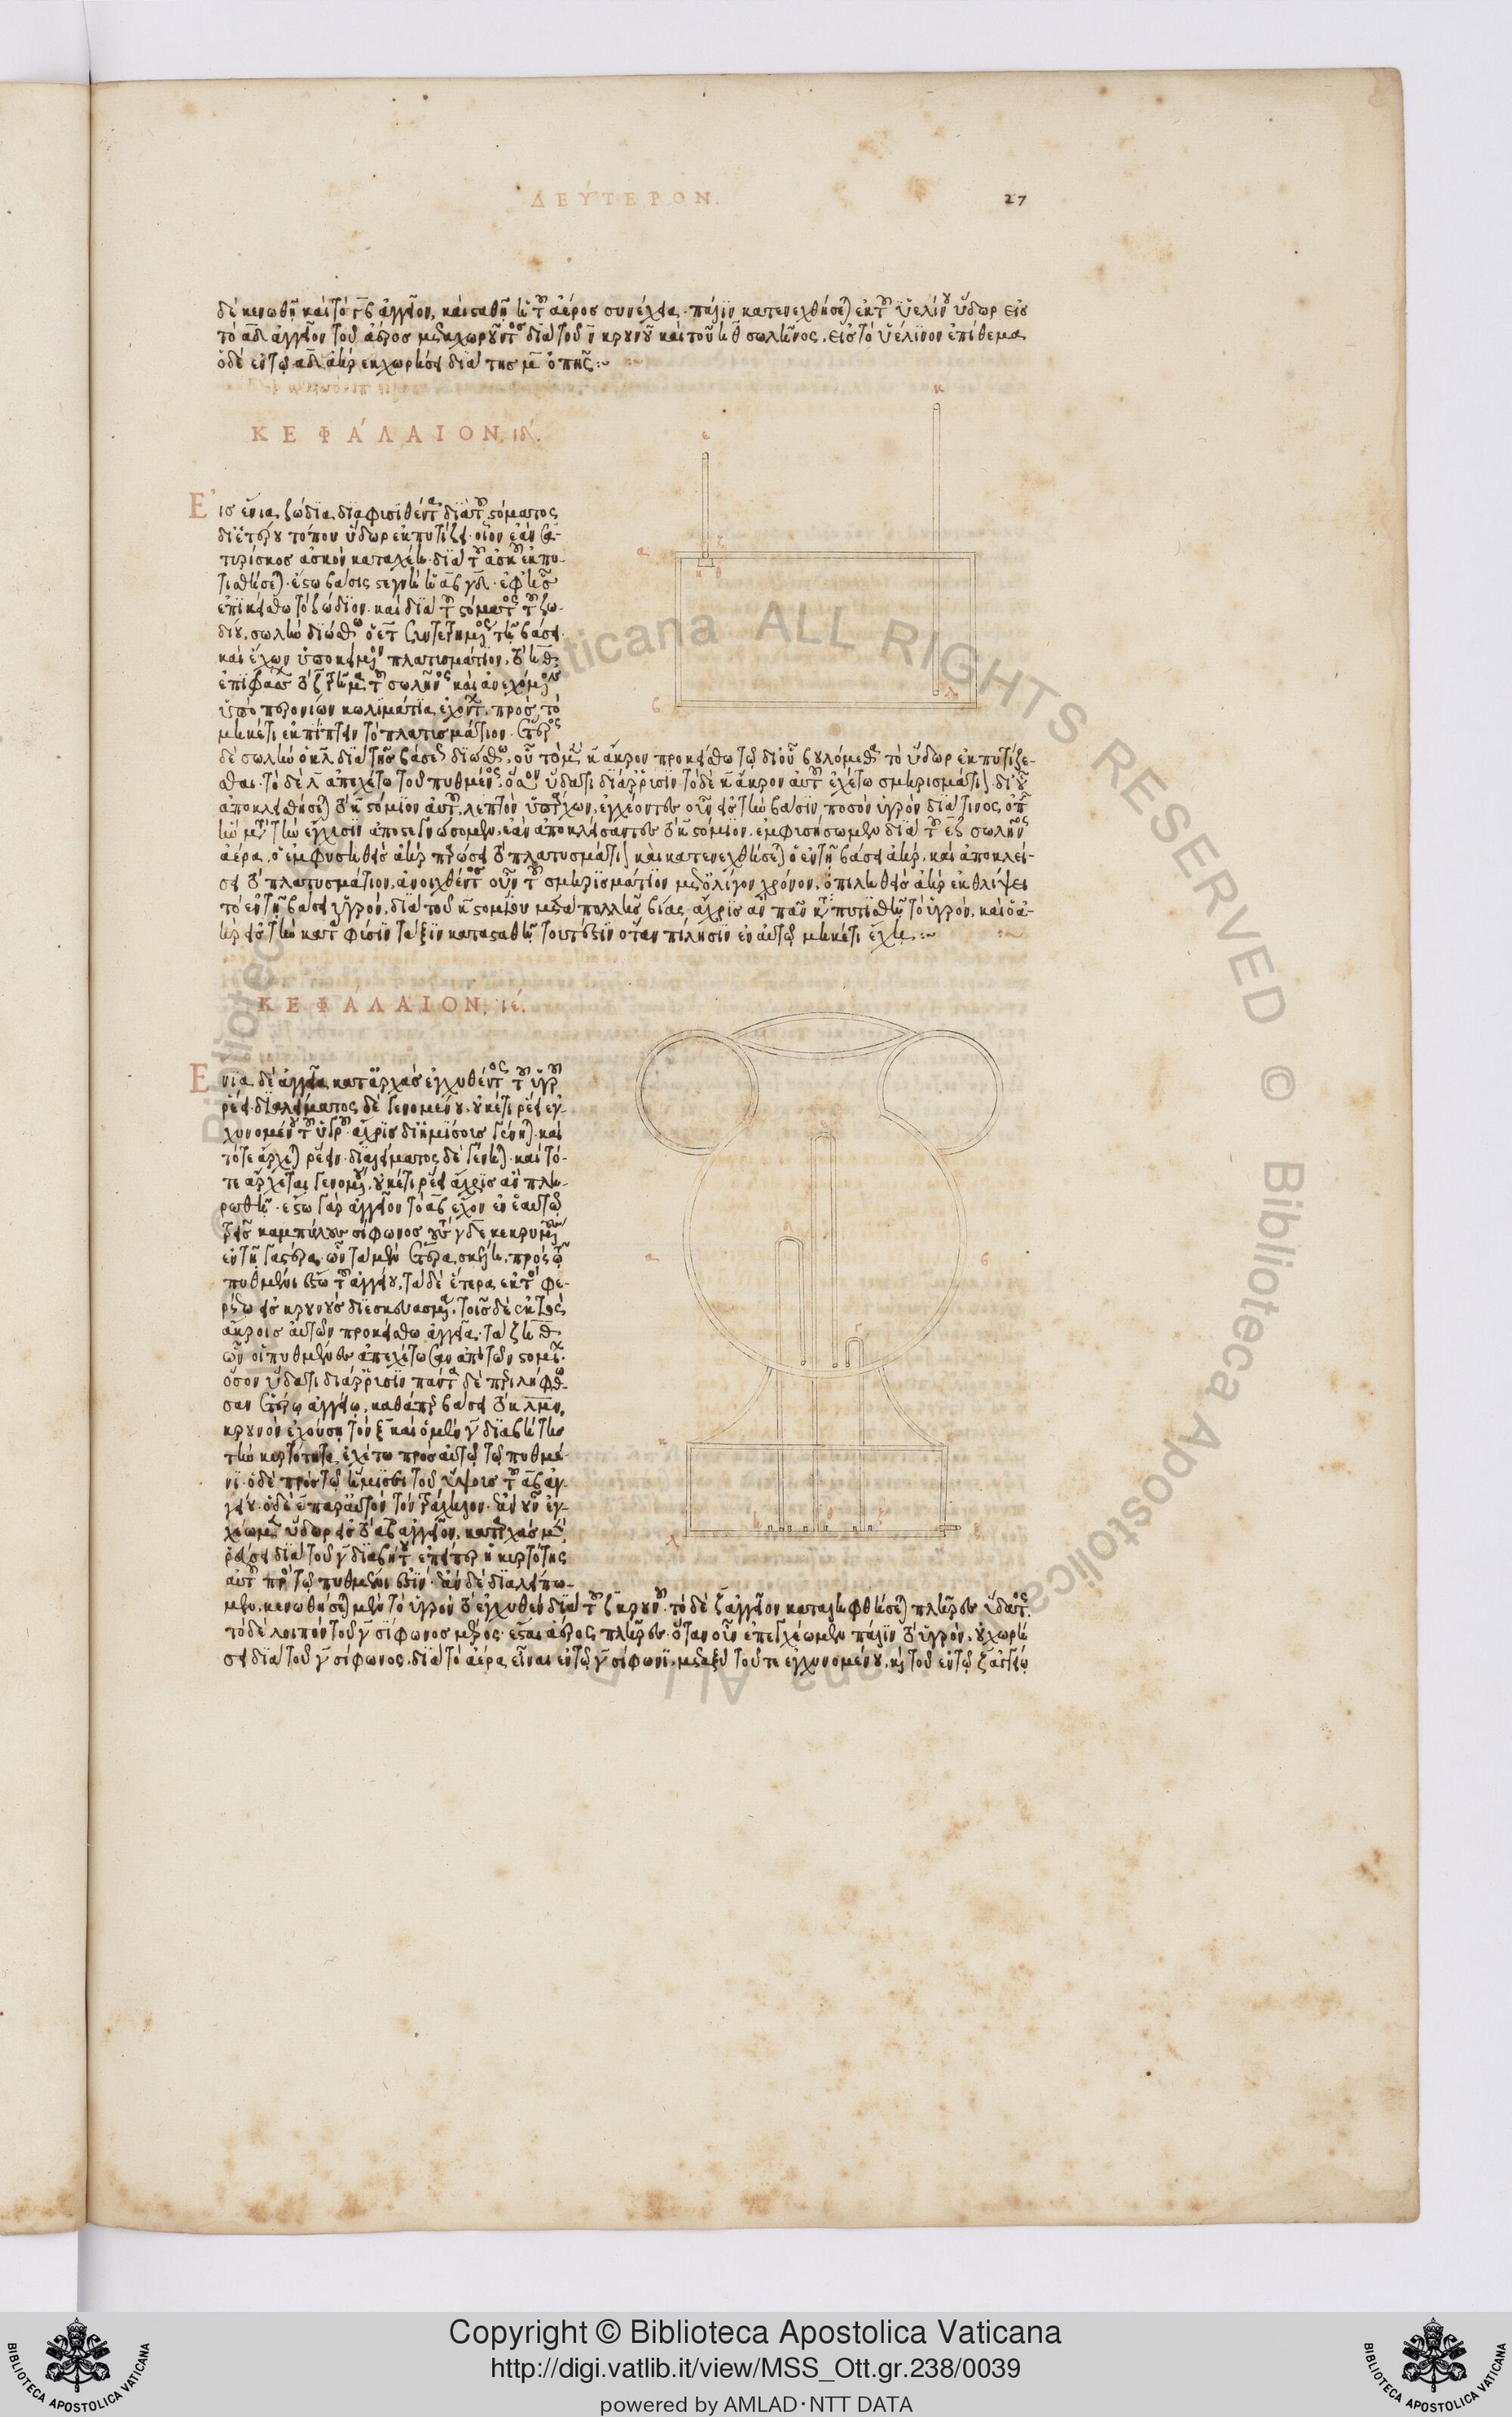 ΔΕΥΤΕΡΟΝ.
27
δὲ κενωθῆ καὶ τὸ ἀγγεῖον, καὶ ἀέρος συνέλθη. πάλιν κατενεχθήσεται ἐκ τοῦ ὑελίνου ὕδωρ εἰς
τὸ αδ ἀγγεῖον τοῦ ἀέρος διὰ τοῦ ν κρουνοῦ καὶ τοῦ ηθ σωλῆνος. εἰς τὸ ὑέλινον ἐπίθεμα
ὁ δὲ ἐν τῷ αδ ἀὴρ ἐκχωρήσει διὰ τῆς μ ὀπῆς:~
ΚΕΦΑΛΑΙΟΝ. ιδ.
Εἰς ἔνια ζώδια διὰ τοῦ στόματος
δι ἑτέρου τόπου ὕδωρ ἐκπυτίζει. οἷον ἐὰν σα-
τυρίσκος ἀσκὸν κατέχη. διὰ τοῦ ἀσκοῦ ἐκπυ-
τισθήσεται. ἔστω βάσις στεγνὴ ἡ αβγδ. ἐφ ἧς
ἐπικείσθω τὸ ζώδιον. καὶ διὰ τοῦ στόματος τοῦ ζω-
δίου, σωλὴν διώσθω ὁ εζ συντετρημένος τῇ βάσει.
καὶ ἔχων ὑποκείμενον πλατυσμάτιον, τὸ ηθ
κωλυμάτια ἔχοντα. πρὸς τὸ
μηκέτι ἐκπίπτειν τὸ πλατυσμάτιον. ἕτερος
δὲ σωλὴν ὁ κλ διὰ τῆς βάσεως διώσθω, οὗ τὸ μὲν κ ἄκρον προκείσθω τῷ δι οὗ βουλόμεθα τὸ ὕδωρ ἐκπυτίζε-
σθαι. τὸ δὲ λ ἀπεχέτω τοῦ πυθμένος, ὅσον ὕδατι διάρρυσιν. τὸ δὲ κ ἄκρον αὐτοῦ ἐχέτω σμηρισμάτιον δι οὗ
ἀποκλεισθήσεται τὸ κ στόμιον αὐτοῦ, λεπτὸν ὑπάρχων, ἐγχέοντες οὖν εἰς τὴν βάσιν ποσὸν ὑγρὸν διά τινος ὀπῆς
ἣν μετὰ τὴν ἔγχυσιν ἀποστεγνώσομεν, ἐὰν ἀποκλείσαντες τὸ κ στόμιον. ἐμφυσήσωμεν διὰ τοῦ εζ σωλῆνος
ἀέρα, ὁ ἐμφυσηθεὶς ἀὴρ πλατυσμάτιον καὶ κατενεχθήσεται ὁ ἐν τῇ βάσει ἀήρ, καὶ ἀποκλεί-
σει τὸ πλατυσμάτιον, ἀνοιχθέντος οὖν τοῦ σμηρισματίου μετ ὀλίγον χρόνον, ὁ πιληθεὶς ἀὴρ ἐκθλίψει
τὸ ἐν τῇ βάσει ὑγρόν, διὰ τοῦ κ στομίου μετὰ πολλῆς βίας. ἄχρις ἂν πᾶν ἐκπυτισθῇ τὸ ὑγρόν, καὶ ὁ ἀ-
ὴρ εἰς τὴν κατὰ φύσιν τάξιν καταστῇ τουτέστιν ὅταν πίλησιν ἐν αὐτῷ μηκέτι ἔχη.:~
ΚΕΦΑΛΑΙΟΝ. ιέ.
Ἔνια δὲ ἀγγεῖα κατ ἀρχὰς ἐγχυθέντος τοῦ ὑγροῦ
ῥεῖ. διαλείμματος δὲ γενομένου, οὐκέτι ῥεῖ ἐγ-
χυνομένου τοῦ ὑγροῦ. ἄχρις δι ἡμίσους γένηται. καὶ
τότε ἄρχεται ῥεῖν. διαλείμματος δὲ γένηται. καὶ τό-
τε ἄρχεται γενομένου, οὐκέτι ῥεῖ ἄχρις ἂν πλη-
ρωθῇ. ἔστω γὰρ ἀγγεῖον τὸ αβ ἔχον ἐν ἑαυτῷ
τρεῖς καμπύλους σίφωνας τοὺς γδε κεκρυμμένους
ἐν τῇ γαστέρα, ὧν τὰ μὲν ἕτερα σκέλη, πρὸς τῷ
πυθμένι ἔστω τοῦ ἀγγείου, τὰ δὲ ἕτερα ἐκτὸς φε-
ρέτω εἰς κρουνοὺς διεσκευασμένα. τοῖς δὲ ἐκτὸς
ἄκροις αὐτῶν προκείσθω ἀγγεῖα τὰ ζηθ
ὧν οἱ πυθμένες ἀπεχέτωσαν ἀπὸ τῶν στομίων.
ὅσον ὕδατι διάρρυσιν πάντα δὲ περιλήφθω-
σαν ἑτέρῳ ἀγγείῳ, καθάπερ βάσει τὸ κλμν,
κρουνὸν ἐχούσῃ τὸν ξ καὶ ὁ μὲν γ διαβήτης
τὴν κυρτότητα ἐχέτω πρὸς αὐτῷ τῷ πυθμέ-
νι. ὁ δὲ πρὸς τῷ ἡμίσει τοῦ ὕψους τοῦ αβ ἀγ-
γείου. ὁ δὲ ε παρ αὐτὸν τὸν τράχηλον. ἐὰν οὖν ἐγ-
χέωμεν ὕδωρ εἰς τὸ αβ ἀγγεῖον, κατ ἀρχὰς μὲν
ῥεύσει διὰ τοῦ γ διαβήτου ἐπείπερ ἡ κυρτότης
αὐτοῦ πρὸς τῷ πυθμένι ἐστίν. ἐὰν δὲ διαλείπω-
μεν. κενωθήσεται μὲν τὸ ὑγρὸν τὸ ἐγχυθὲν διὰ τοῦ ξ κρουνοῦ. τὸ δὲ ζ ἀγγεῖον καταληφθήσεται πλῆρες ὕδατος
τὸ δὲ λοιπὸν τοῦ γ σίφωνος μέρος. ἔσται ἀέρος πλῆρες. ὅταν οὖν ἐπεγχέωμεν πάλιν τὸ ὑγρόν, οὐ χωρή
σει διὰ τοῦ γ σίφωνος. διὰ τὸ ἀέρα εἶναι ἐν τῷ γ σίφωνι. μεταξὺ τοῦ τε ἐγχυνομένου. καὶ τοῦ ἐν τῷ ζ ἀγγείῳ
© Biblioteca Apostolica Vaticana ALL RIGHTS RESERVED
Copyright © Biblioteca Apostolica Vaticana
http://digi.vatlib.it/view/MSS_Ott.gr.238/0039
powered by AMLAD·NTT DATA
BIBLIOTECA APOSTOLICA VATICANA
BIBLIOTECA APOSTOLICA VATICANA